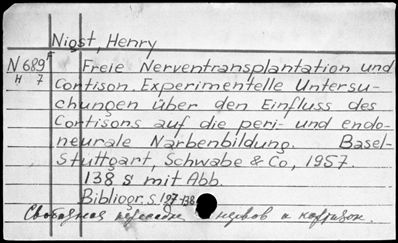 Nigst, Henry
N 689 F Freie Nerventransplantation und
H 7 Cortison. Experimentelle Untersu-
chungen über den Einfluss des
Cortisons auf die peri- und endo-
neurale Narbenbildung. Basel-
Stuttgart, Schwabe & Co, 1957.
138 s mit Abb.
Bibliogr. s. 127-138
Свободная пересадка нервов и кортизон.